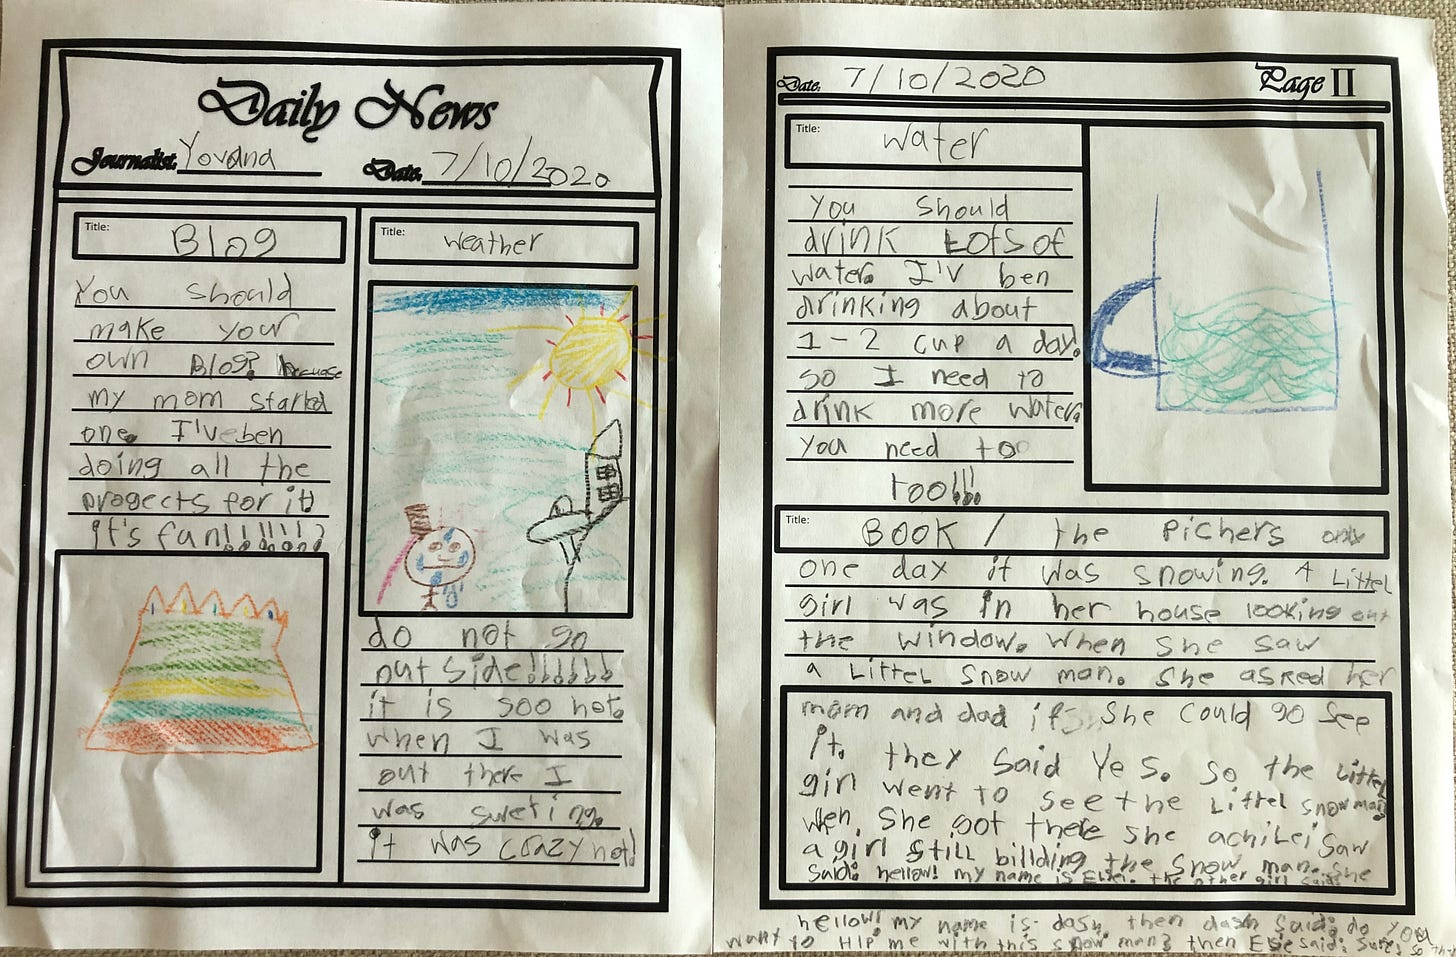 Daily News
Journalist: Yovana Date: 7/10/2020
Title: Blog
You should
make your
own Blog? becuase
my mom started
one. I'v ben
doing all the
progects for it!
it's fun!!!!!!?
Title: Weather
do not go
out side!!!!!!
it is soo hot.
when I was
out there I
was sweting.
it was crazy hot!
Date: 7/10/2020 Page II
Title: Water
You should
drink Lots of
water. I'v ben
drinking about
1-2 cup a day!
so I need to
drink more water.
you need to
too!!!
Title: BOOK / the Pichers only
one day it was snowing. A Littel
girl was in her house looking out
the window. When she saw
a Littel snow man. She asked her
mom and dad if she could go see
it. they said Yes. so the Littel
girl went to see the Littel snowman
wen. She got there she achilei saw
a girl still billding the snow man. She
said: hellow! my name is Elsie. the other girl said:
hellow! my name is dash. then dash said: do you
want to Hlp me with this snow man? then Elsie said: sure; so the